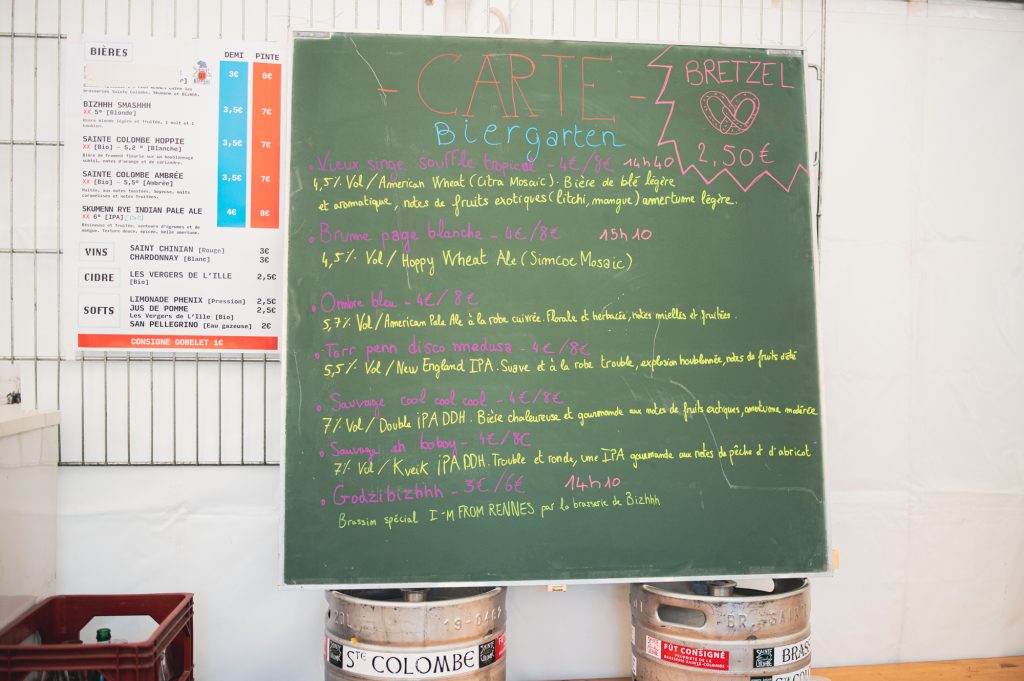 BIÈRES
DEMI PINTE
3€ 6€
brasseries Sainte Colombe, Skumenn et Bizhhh.
BIZHHH SMASHHH
XX 5° [Blonde]
3,5€ 7€
Bière blonde légère et fruitée, 1 malt et 1
houblon.
SAINTE COLOMBE HOPPIE
XX [Bio] - 5,2 ° [Blanche]
3,5€ 7€
Bière de froment fleurie sur un houblonnage
subtil, notes d'orange et de coriandre.
SAINTE COLOMBE AMBRÉE
XX [Bio] - 5,5° [Ambrée]
3,5€ 7€
Maltée, aux notes toastées, soyeuse, malts
caramélisés et notes fruitées.
SKUMENN RYE INDIAN PALE ALE
XX 6° [IPA]
4€ 8€
Résineuse et fruitée, senteurs d'agrumes et de
mangue. Texture douce, épicée, belle amertume.
VINS
SAINT CHINIAN [Rouge] 3€
CHARDONNAY [Blanc] 3€
CIDRE
LES VERGERS DE L'ILLE 2,5€
[Bio]
SOFTS
LIMONADE PHENIX [Pression] 2,5€
JUS DE POMME 2,5€
Les Vergers de L'Ille [Bio]
SAN PELLEGRINO [Eau gazeuse] 2€
CONSIGNE GOBELET 1€
- CARTE -
Biergarten
BRETZEL
2,50€
Vieux singe souffle tropical - 4€/8€ 14h40
4,5% Vol / American Wheat (Citra Mosaic). Bière de blé légère
et aromatique, notes de fruits exotiques (litchi, mangue) amertume légère.
Brume page blanche - 4€/8€ 15h10
4,5% Vol / Hoppy Wheat Ale (Simcoe Mosaic)
Ombre bleu - 4€/8€
5,7% Vol / American Pale Ale à la robe cuivrée. Florale et herbacée, notes miellés et fruitées.
Torr penn disco medusa - 4€/8€
5,5% Vol / New England IPA. Suave et à la robe trouble, explosion houblonnée, notes de fruits d'été
Sauvage cool cool cool - 4€/8€
7% Vol / Double IPA DDH. Bière chaleureuse et gourmande aux notes de fruits exotiques, amertume modérée
Sauvage eh boboy - 4€/8€
7% Vol / Kveik IPA DDH. Trouble et ronde, une IPA gourmande aux notes de pêche et d'abricot
Godzibizhhh - 3€/6€ 14h10
Brassin spécial I-M FROM RENNES par la brasserie de Bizhhh
STE COLOMBE
FÛT CONSIGNÉ
SAINTE
COLOMBE